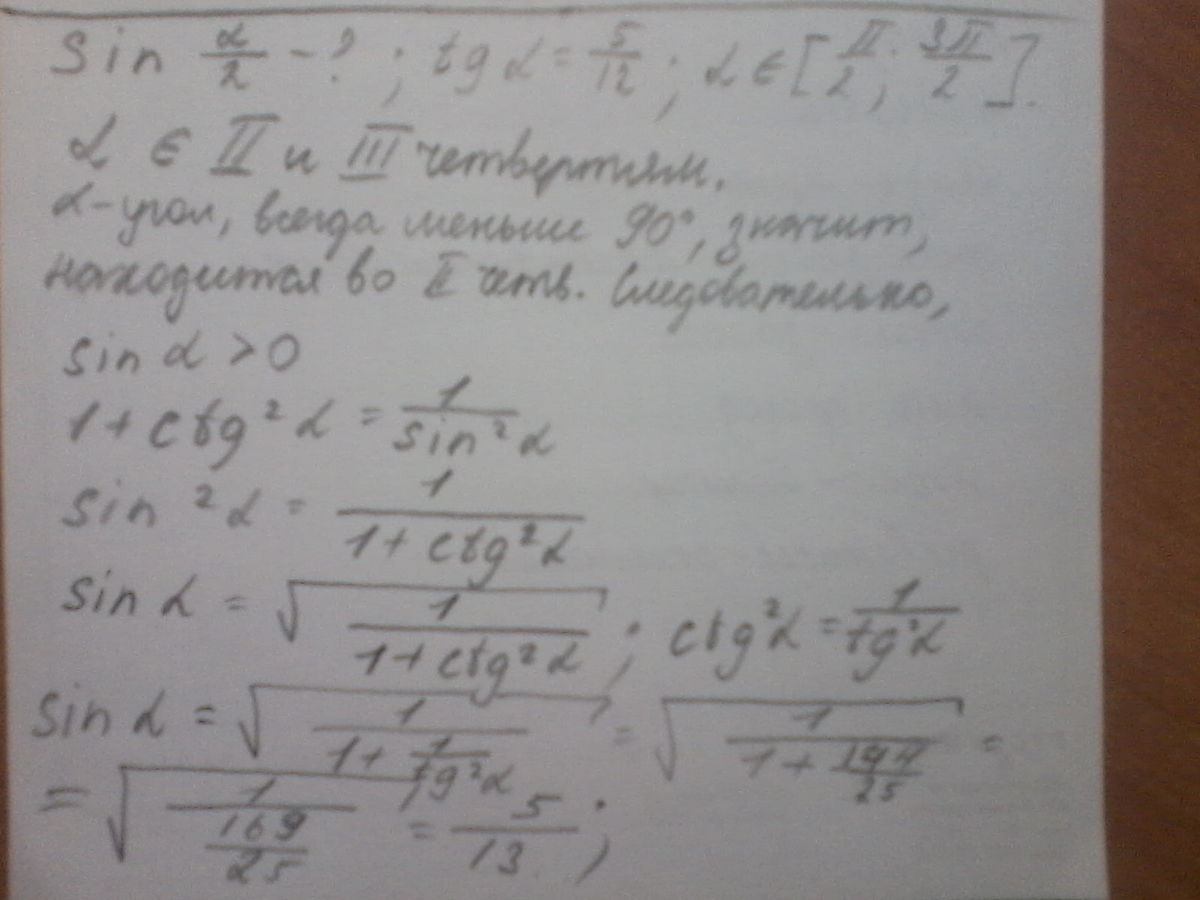 sin α/2 - ?; tg α = 5/12; α ∈ [π/2; 3π/2].
α ∈ II и III четвертям.
α - угол, всегда меньше 90°, значит,
находится во II четв. Следовательно,
sin α > 0
1 + ctg² α = 1/sin² α
sin² α = 1/(1 + ctg² α)
sin α = √(1/(1 + ctg² α)); ctg² α = 1/tg² α
sin α = √(1/(1 + 1/tg² α)) = √(1/(1 + 144/25)) =
= √(1/(169/25)) = 5/13;